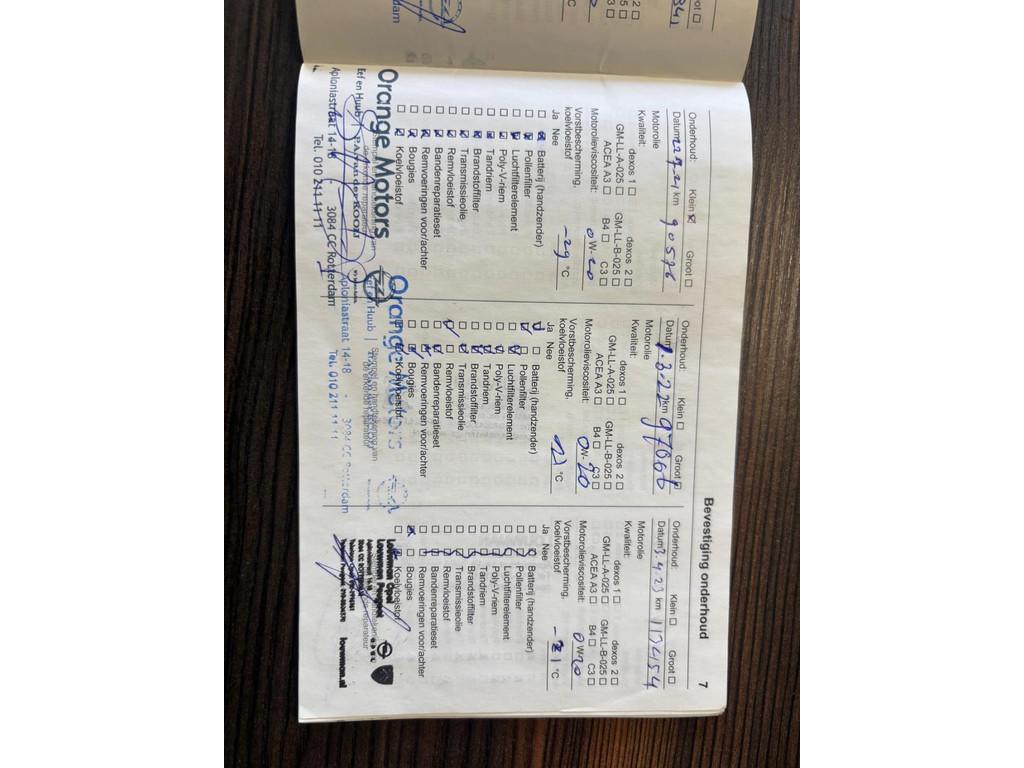 Bevestiging onderhoud 7
Onderhoud: Klein ☒ Groot ☐
Datum 22 9 21 km 90576
Motorolie
Kwaliteit:
dexos 1 ☐ dexos 2 ☐
GM-LL-A-025 ☐ GM-LL-B-025 ☐
ACEA A3 ☐ B4 ☐ C3 ☐
Motorolieviscositeit: 0 W-20
Vorstbescherming,
koelvloeistof -29 °C
Ja Nee
Batterij (handzender)
Pollenfilter
Luchtfilterelement
Poly-V-riem
Tandriem
Brandstoffilter
Transmissieolie
Remvloeistof
Bandenreparatieset
Remvoeringen voor/achter
Bougies
Koelvloeistof
Orange Motors
Eef en Huub
P.A. van der KOOIJ
Aploniastraat 14-18 · 3084 CC Rotterdam
Tel. 010 211 11 11
Onderhoud: Klein ☐ Groot ☑
Datum 1.3.22 km 97066
Motorolie
Kwaliteit:
dexos 1 ☐ dexos 2 ☐
GM-LL-A-025 ☐ GM-LL-B-025 ☐
ACEA A3 ☐ B4 ☐ C3 ☐
Motorolieviscositeit: 0W-20
Vorstbescherming,
koelvloeistof °C
Ja Nee
Batterij (handzender)
Pollenfilter
Luchtfilterelement
Poly-V-riem
Tandriem
Brandstoffilter
Transmissieolie
Remvloeistof
Bandenreparatieset
Remvoeringen voor/achter
Bougies
Koelvloeistof
Orange Motors
Eef en Huub | Stempel en handtekening van
de erkende reparateur
Aploniastraat 14-18 · 3084 CC Rotterdam
Tel. 010 211 11 11
Onderhoud: Klein ☐ Groot ☐
Datum 3.4.23 km 112454
Motorolie
Kwaliteit:
dexos 1 ☐ dexos 2 ☐
GM-LL-A-025 ☐ GM-LL-B-025 ☐
ACEA A3 ☐ B4 ☐ C3 ☐
Motorolieviscositeit: 0W20
Vorstbescherming,
koelvloeistof °C
Ja Nee
Batterij (handzender)
Pollenfilter
Luchtfilterelement
Poly-V-riem
Tandriem
Brandstoffilter
Transmissieolie
Remvloeistof
Bandenreparatieset
Remvoeringen voor/achter
Bougies
Koelvloeistof
Louwman Opel
Louwman Peugeot
louwman.nl